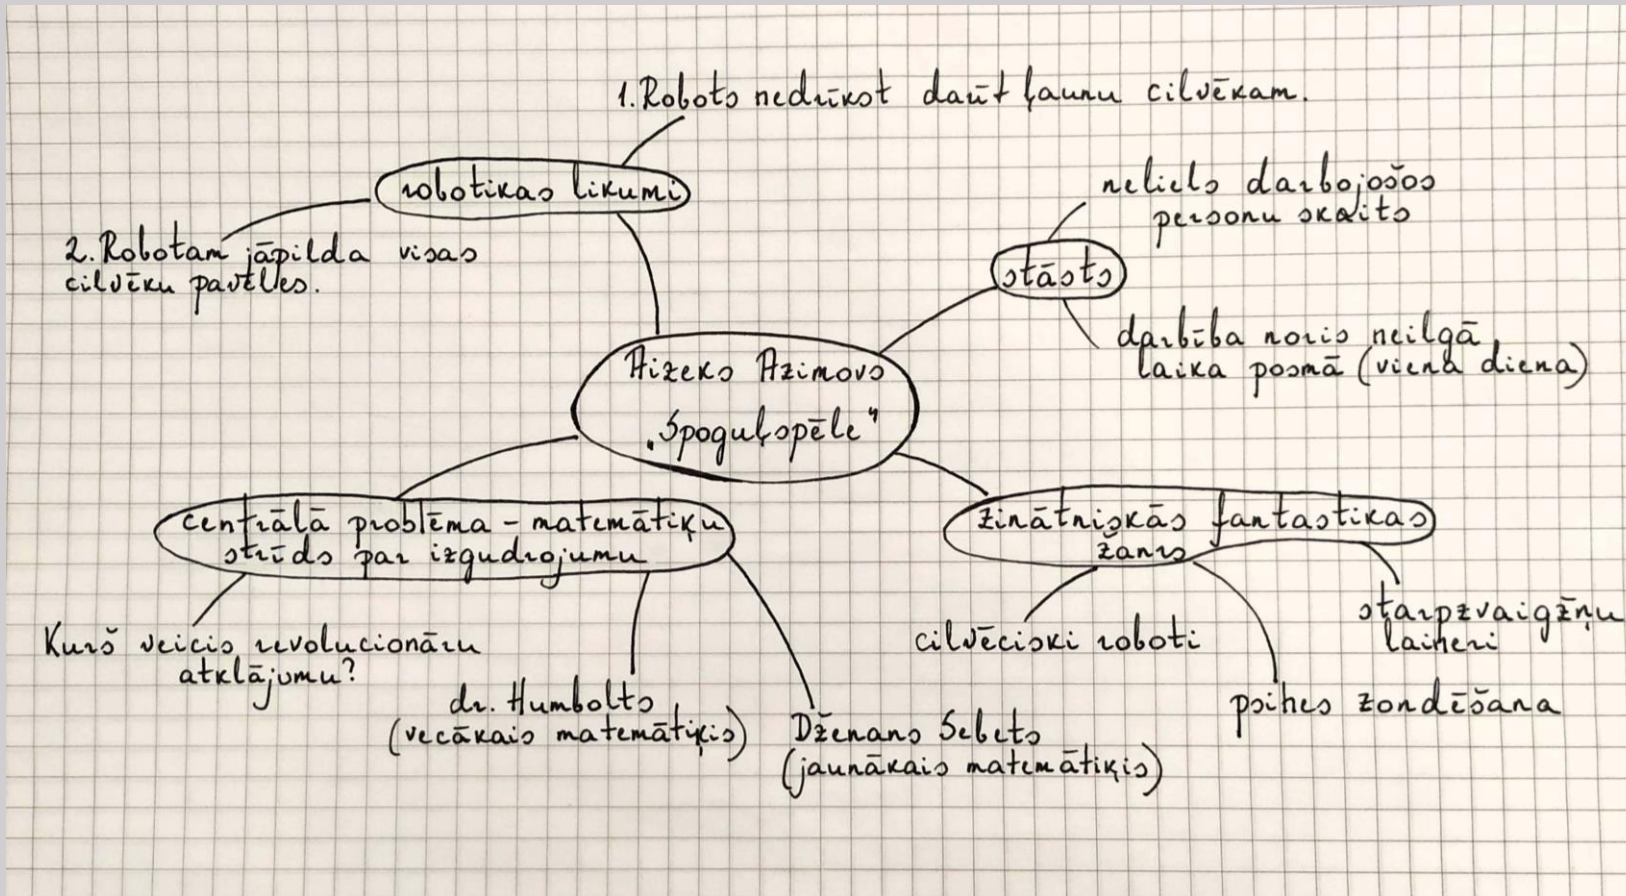 1. Robots nedrīkst darīt ļaunu cilvēkam.
robotikas likumi
2. Robotam jāpilda visas
cilvēku pavēles.
neliels darbojošos
personu skaits
stāsts
darbība noris neilgā
laika posmā (viena diena)
Aizeks Azimovs
"Spoguļspēle"
centrālā problēma - matemātiķu
strīds par izgudrojumu
Kurš veicis revolucionāru
atklājumu?
dr. Humbolts
(vecākais matemātiķis)
Dženans Sebets
(jaunākais matemātiķis)
zinātniskās fantastikas
žanrs
cilvēciski roboti
psihes zondēšana
starpzvaigžņu
laineri